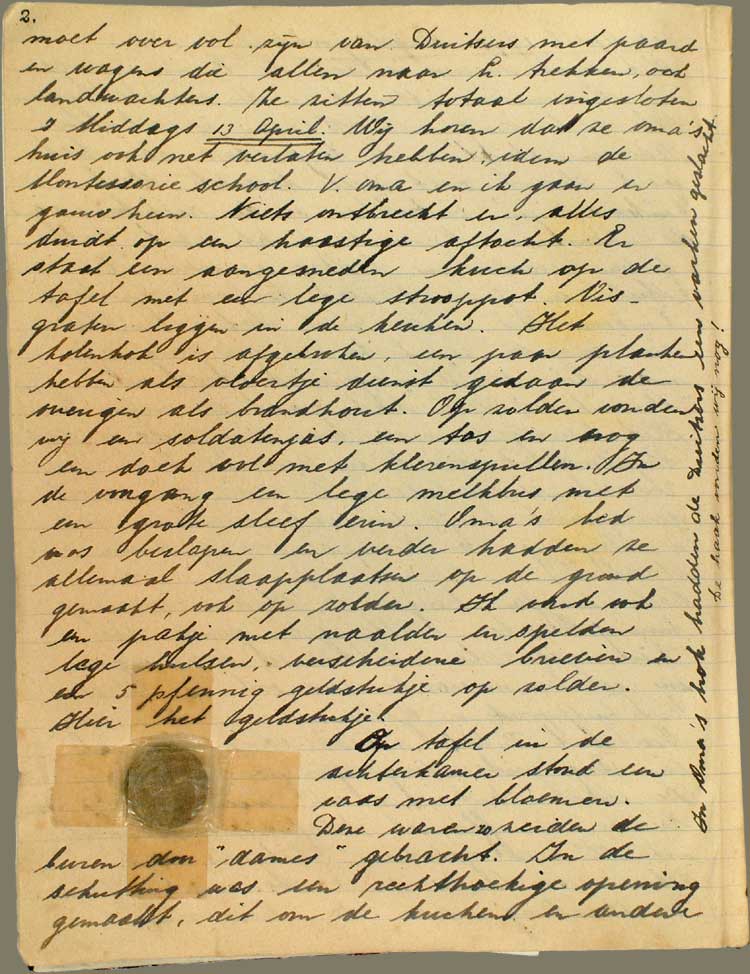 2.
moet over vol zijn van Duitsers met paard
en wagens die allen naar h. trekken, ook
landwachters. Ze zitten totaal ingesloten
's Middags 13 April. Wij horen dat ze oma's
huis ook net verlaten hebben, idem de
Montessorie school. V. oma en ik gaan er
gauw heen. Niets ontbreekt er, alles
duidt op een haastige aftocht. Er
staat een aangesneden kuch op de
tafel met een lege strooppot. Vis-
graten liggen in de keuken. Het
kolenhok is afgebroken, een paar planken
hebben als vloertje dienst gedaan de
overigen als brandhout. Op zolder vonden
wij een soldatenjas, een tas en nog
een doek vol met klerenspullen. In
de ingang een lege melkbus met
een grote sleef erin. Oma's bed
was beslapen en verder hadden ze
allemaal slaapplaatsen op de grond
gemaakt, ook op zolder. Ik vond ook
een pakje met naalden en spelden
lege hulsen, verscheidene brieven en
een 5 pfennig geldstukje op zolder.
Hier het geldstukje.
Op tafel in de
achterkamer stond een
vaas met bloemen.
Deze waren zo zeiden de
buren door "dames" gebracht. In de
schutting was een rechthoekige opening
gemaakt, dit om de kuchen en andere
In Oma's hok hadden de Duitsers een varken geslacht.
De haak vonden wij nog!